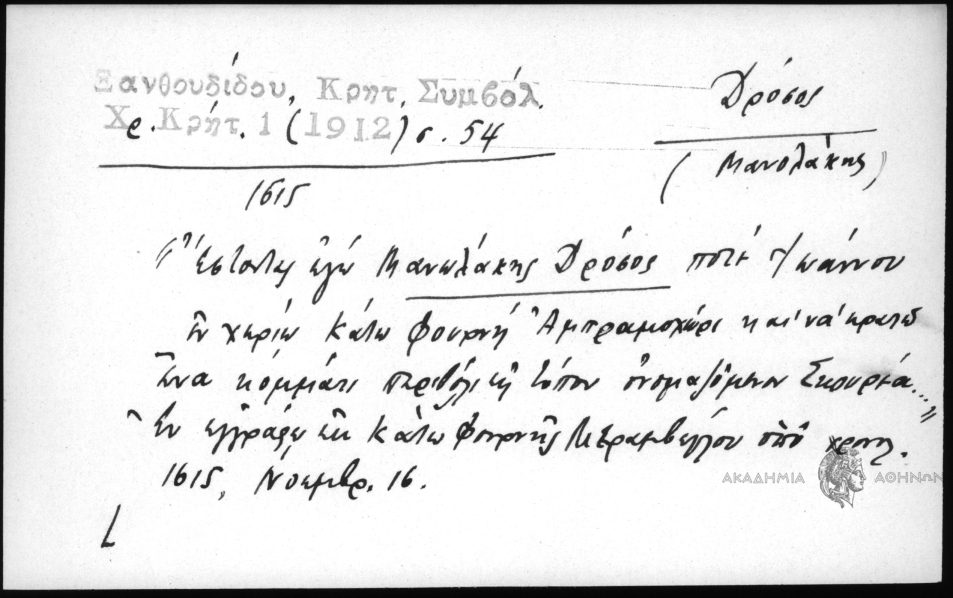 Ξανθουδίδου, Κρητ. Συμβόλ.
Χρ. Κρήτ. 1 (1912) σ. 54
Δρόσος
(Μανολάκης)
1615
"Ἔστοντας ἐγώ Μανωλάκης Δρόσος ποτέ Ἰωάννου
ἐν χωρίῳ Κάτω Φουρνῆ Ἀμπραμοχώρι καὶ νά κρατῶ
ἕνα κομμάτι περιβόλι εἰς τόπον ὀνομαζόμενον Σκουρεά..."
Ἐν ἐγγράφῳ ἐκ Κάτω Φουρνῆς Μεραμβέλλου ὑπό χρονολ.
1615, Νοεμβρ. 16.
ΑΚΑΔΗΜΙΑ ΑΘΗΝΩΝ